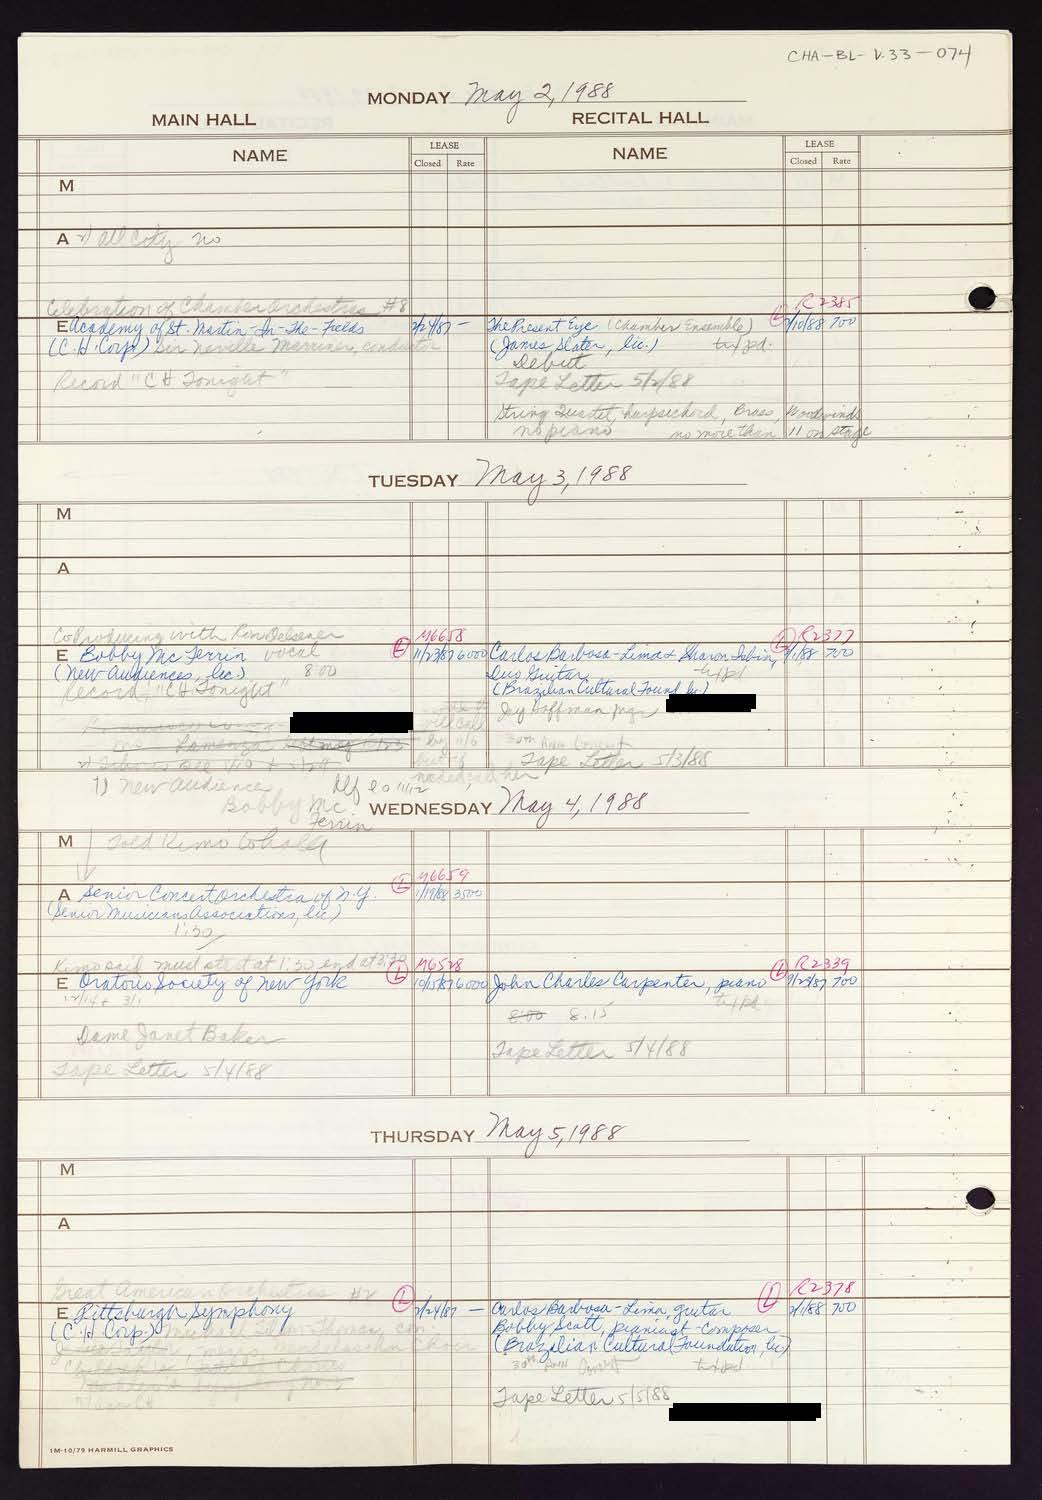 CHA-BL-V.33-074
MONDAY May 2, 1988
MAIN HALL
RECITAL HALL
NAME
LEASE
Closed Rate
NAME
LEASE
Closed Rate
M
A 71 All City no
Celebration of Chamber Orchestras #8
E Academy of St. Martin-In-The-Fields 2/24/87 -
(C.H. Corp) Sir Neville Marriner, conductor
Record "CH Tonight"
R2385
The Present Eye (Chamber Ensemble) L 2/10/88 700
(James Slater, lic.) tix pd.
Debut
Tape Letter 5/2/88
String Quartet, harpsichord, Brass, Woodwinds
no piano no more than 11 on stage
TUESDAY May 3, 1988
M
A
CoProducing with Ron Delsener M6658
E Bobby McFerrin vocal L 11/23/87 6000
(New Audiences, lic) 8:00
Record "CH Tonight"
R2377
Carlos Barbosa-Lima & Sharon Isbin, L 2/1/88 700
Duo Guitar tix pd
(Brazilian Cultural Found, lic)
Jay Hoffman mgr
30th Ann Concert
Tape Letter 5/3/88
71 New Audience
Bobby Mc
Ferrin
WEDNESDAY May 4, 1988
M Told Kimo
M6659
A Senior Concert Orchestra of N.Y. L 1/19/88 3500
(Senior Musicians Associations, lic)
1:30
Kimo said must start at 1:30 end at 3:30 M6528
E Oratorio Society of New York L 10/15/87 6000
12/14 + 3/1
Dame Janet Baker
Tape Letter 5/4/88
R2339
John Charles Carpenter, piano L 9/29/87 700
tix pd
8:00 8:15
Tape Letter 5/4/88
THURSDAY May 5, 1988
M
A
Great American Orchestras #2
E Pittsburgh Symphony L 2/24/87 -
(C.H. Corp)
R2378
Carlos Barbosa-Lima, guitar L 2/1/88 700
Bobby Scott, pianist-composer
(Brazilian Cultural Foundation, lic)
30th Ann Concert tix pd
Tape Letter 5/5/88
1M-10/79 HARMILL GRAPHICS